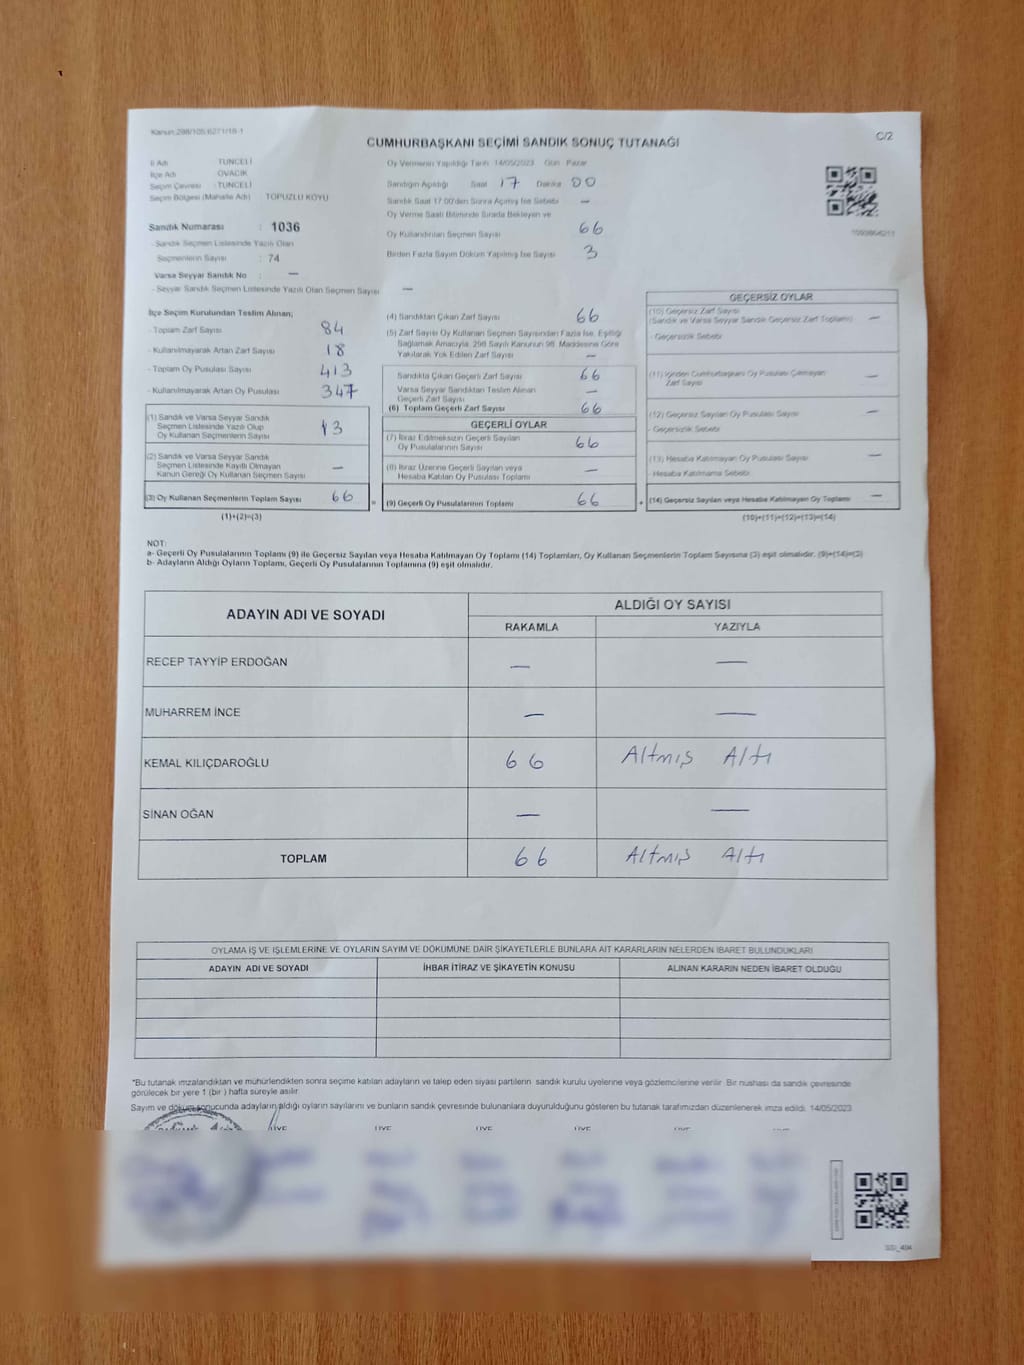 Kanun:298/105;6271/18-1
C/2
CUMHURBAŞKANI SEÇİMİ SANDIK SONUÇ TUTANAĞI
İl Adı : TUNCELİ
İlçe Adı : OVACIK
Seçim Çevresi : TUNCELİ
Seçim Bölgesi (Mahalle Adı) : TOPUZLU KÖYÜ
Sandık Numarası : 1036
- Sandık Seçmen Listesinde Yazılı Olan
Seçmenlerin Sayısı : 74
Varsa Seyyar Sandık No : —
- Seyyar Sandık Seçmen Listesinde Yazılı Olan Seçmen Sayısı : —
Oy Vermenin Yapıldığı Tarih : 14/05/2023 Gün : Pazar
Sandığın Açıldığı Saat 17 Dakika 00
Sandık Saat 17:00'den Sonra Açılmış İse Sebebi —
Oy Verme Saati Bitiminde Sırada Bekleyen ve
Oy Kullandırılan Seçmen Sayısı 66
Birden Fazla Sayım Döküm Yapılmış İse Sayısı 3
İlçe Seçim Kurulundan Teslim Alınan;
- Toplam Zarf Sayısı 84
- Kullanılmayarak Artan Zarf Sayısı 18
- Toplam Oy Pusulası Sayısı 413
- Kullanılmayarak Artan Oy Pusulası 347
(1) Sandık ve Varsa Seyyar Sandık
Seçmen Listesinde Yazılı Olup
Oy Kullanan Seçmenlerin Sayısı 13
(2) Sandık ve Varsa Seyyar Sandık
Seçmen Listesinde Kayıtlı Olmayan
Kanun Gereği Oy Kullanan Seçmen Sayısı —
(3) Oy Kullanan Seçmenlerin Toplam Sayısı 66
(1)+(2)=(3)
(4) Sandıktan Çıkan Zarf Sayısı 66
(5) Zarf Sayısı Oy Kullanan Seçmen Sayısından Fazla İse, Eşitliği
Sağlamak Amacıyla, 298 Sayılı Kanunun 98. Maddesine Göre
Yakılarak Yok Edilen Zarf Sayısı —
Sandıkta Çıkan Geçerli Zarf Sayısı 66
Varsa Seyyar Sandıktan Teslim Alınan
Geçerli Zarf Sayısı —
(6) Toplam Geçerli Zarf Sayısı 66
GEÇERLİ OYLAR
(7) İtiraz Edilmeksizin Geçerli Sayılan
Oy Pusulalarının Sayısı 66
(8) İtiraz Üzerine Geçerli Sayılan veya
Hesaba Katılan Oy Pusulası Toplamı —
= (9) Geçerli Oy Pusulalarının Toplamı 66
GEÇERSİZ OYLAR
(10) Geçersiz Zarf Sayısı
(Sandık ve Varsa Seyyar Sandık Geçersiz Zarf Toplamı) —
- Geçersizlik Sebebi
(11) İçinden Cumhurbaşkanı Oy Pusulası Çıkmayan
Zarf Sayısı —
(12) Geçersiz Sayılan Oy Pusulası Sayısı —
- Geçersizlik Sebebi
(13) Hesaba Katılmayan Oy Pusulası Sayısı —
- Hesaba Katılmama Sebebi
+ (14) Geçersiz Sayılan veya Hesaba Katılmayan Oy Toplamı —
(10)+(11)+(12)+(13)=(14)
NOT:
a- Geçerli Oy Pusulalarının Toplamı (9) ile Geçersiz Sayılan veya Hesaba Katılmayan Oy Toplamı (14) Toplamları, Oy Kullanan Seçmenlerin Toplam Sayısına (3) eşit olmalıdır. (9)+(14)=(3)
b- Adayların Aldığı Oyların Toplamı, Geçerli Oy Pusulalarının Toplamına (9) eşit olmalıdır.
ADAYIN ADI VE SOYADI ALDIĞI OY SAYISI
RAKAMLA YAZIYLA
RECEP TAYYİP ERDOĞAN — —
MUHARREM İNCE — —
KEMAL KILIÇDAROĞLU 66 Altmış Altı
SİNAN OĞAN — —
TOPLAM 66 Altmış Altı
OYLAMA İŞ VE İŞLEMLERİNE VE OYLARIN SAYIM VE DÖKÜMÜNE DAİR ŞİKAYETLERLE BUNLARA AİT KARARLARIN NELERDEN İBARET BULUNDUKLARI
ADAYIN ADI VE SOYADI İHBAR İTİRAZ VE ŞİKAYETİN KONUSU ALINAN KARARIN NEDEN İBARET OLDUĞU
*Bu tutanak imzalandıktan ve mühürlendikten sonra seçime katılan adayların ve talep eden siyasi partilerin sandık kurulu üyelerine veya gözlemcilerine verilir. Bir nüshası da sandık çevresinde
görülecek bir yere 1 (bir ) hafta süreyle asılır.
Sayım ve döküm sonucunda adayların aldığı oyların sayılarını ve bunların sandık çevresinde bulunanlara duyurulduğunu gösteren bu tutanak tarafımızdan düzenlenerek imza edildi. 14/05/2023